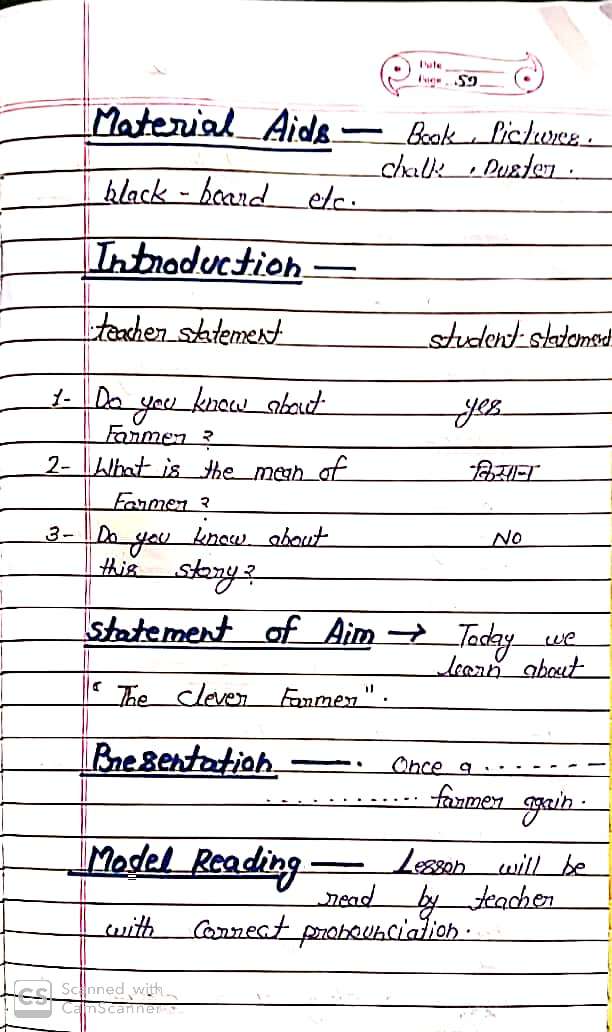 Date
Page 59
Material Aids — Book, Pictures,
chalk, Duster,
black-board etc.
Introduction —
teacher statement student statement
1- Do you know about yes
Farmer ?
2- What is the mean of किसान
Farmer ?
3- Do you know about No
this story?
Statement of Aim → Today we
learn about
" The clever Farmer".
Presentation —. Once a .......
............ farmer again.
Model Reading — Lesson will be
read by teacher
with correct pronounciation.
CS Scanned with
CamScanner